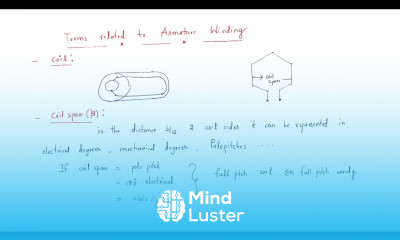 Terms related to Armature Winding
- Coil:
coil
span
- Coil span (β):
is the distance b/w 2 coil sides it can be represented in
electrical degrees, mechanical degrees, Polepitches .....
If coil span = pole pitch
= 180 electrical
full pitch coil (or) full pitch wndg
Mind
Luster